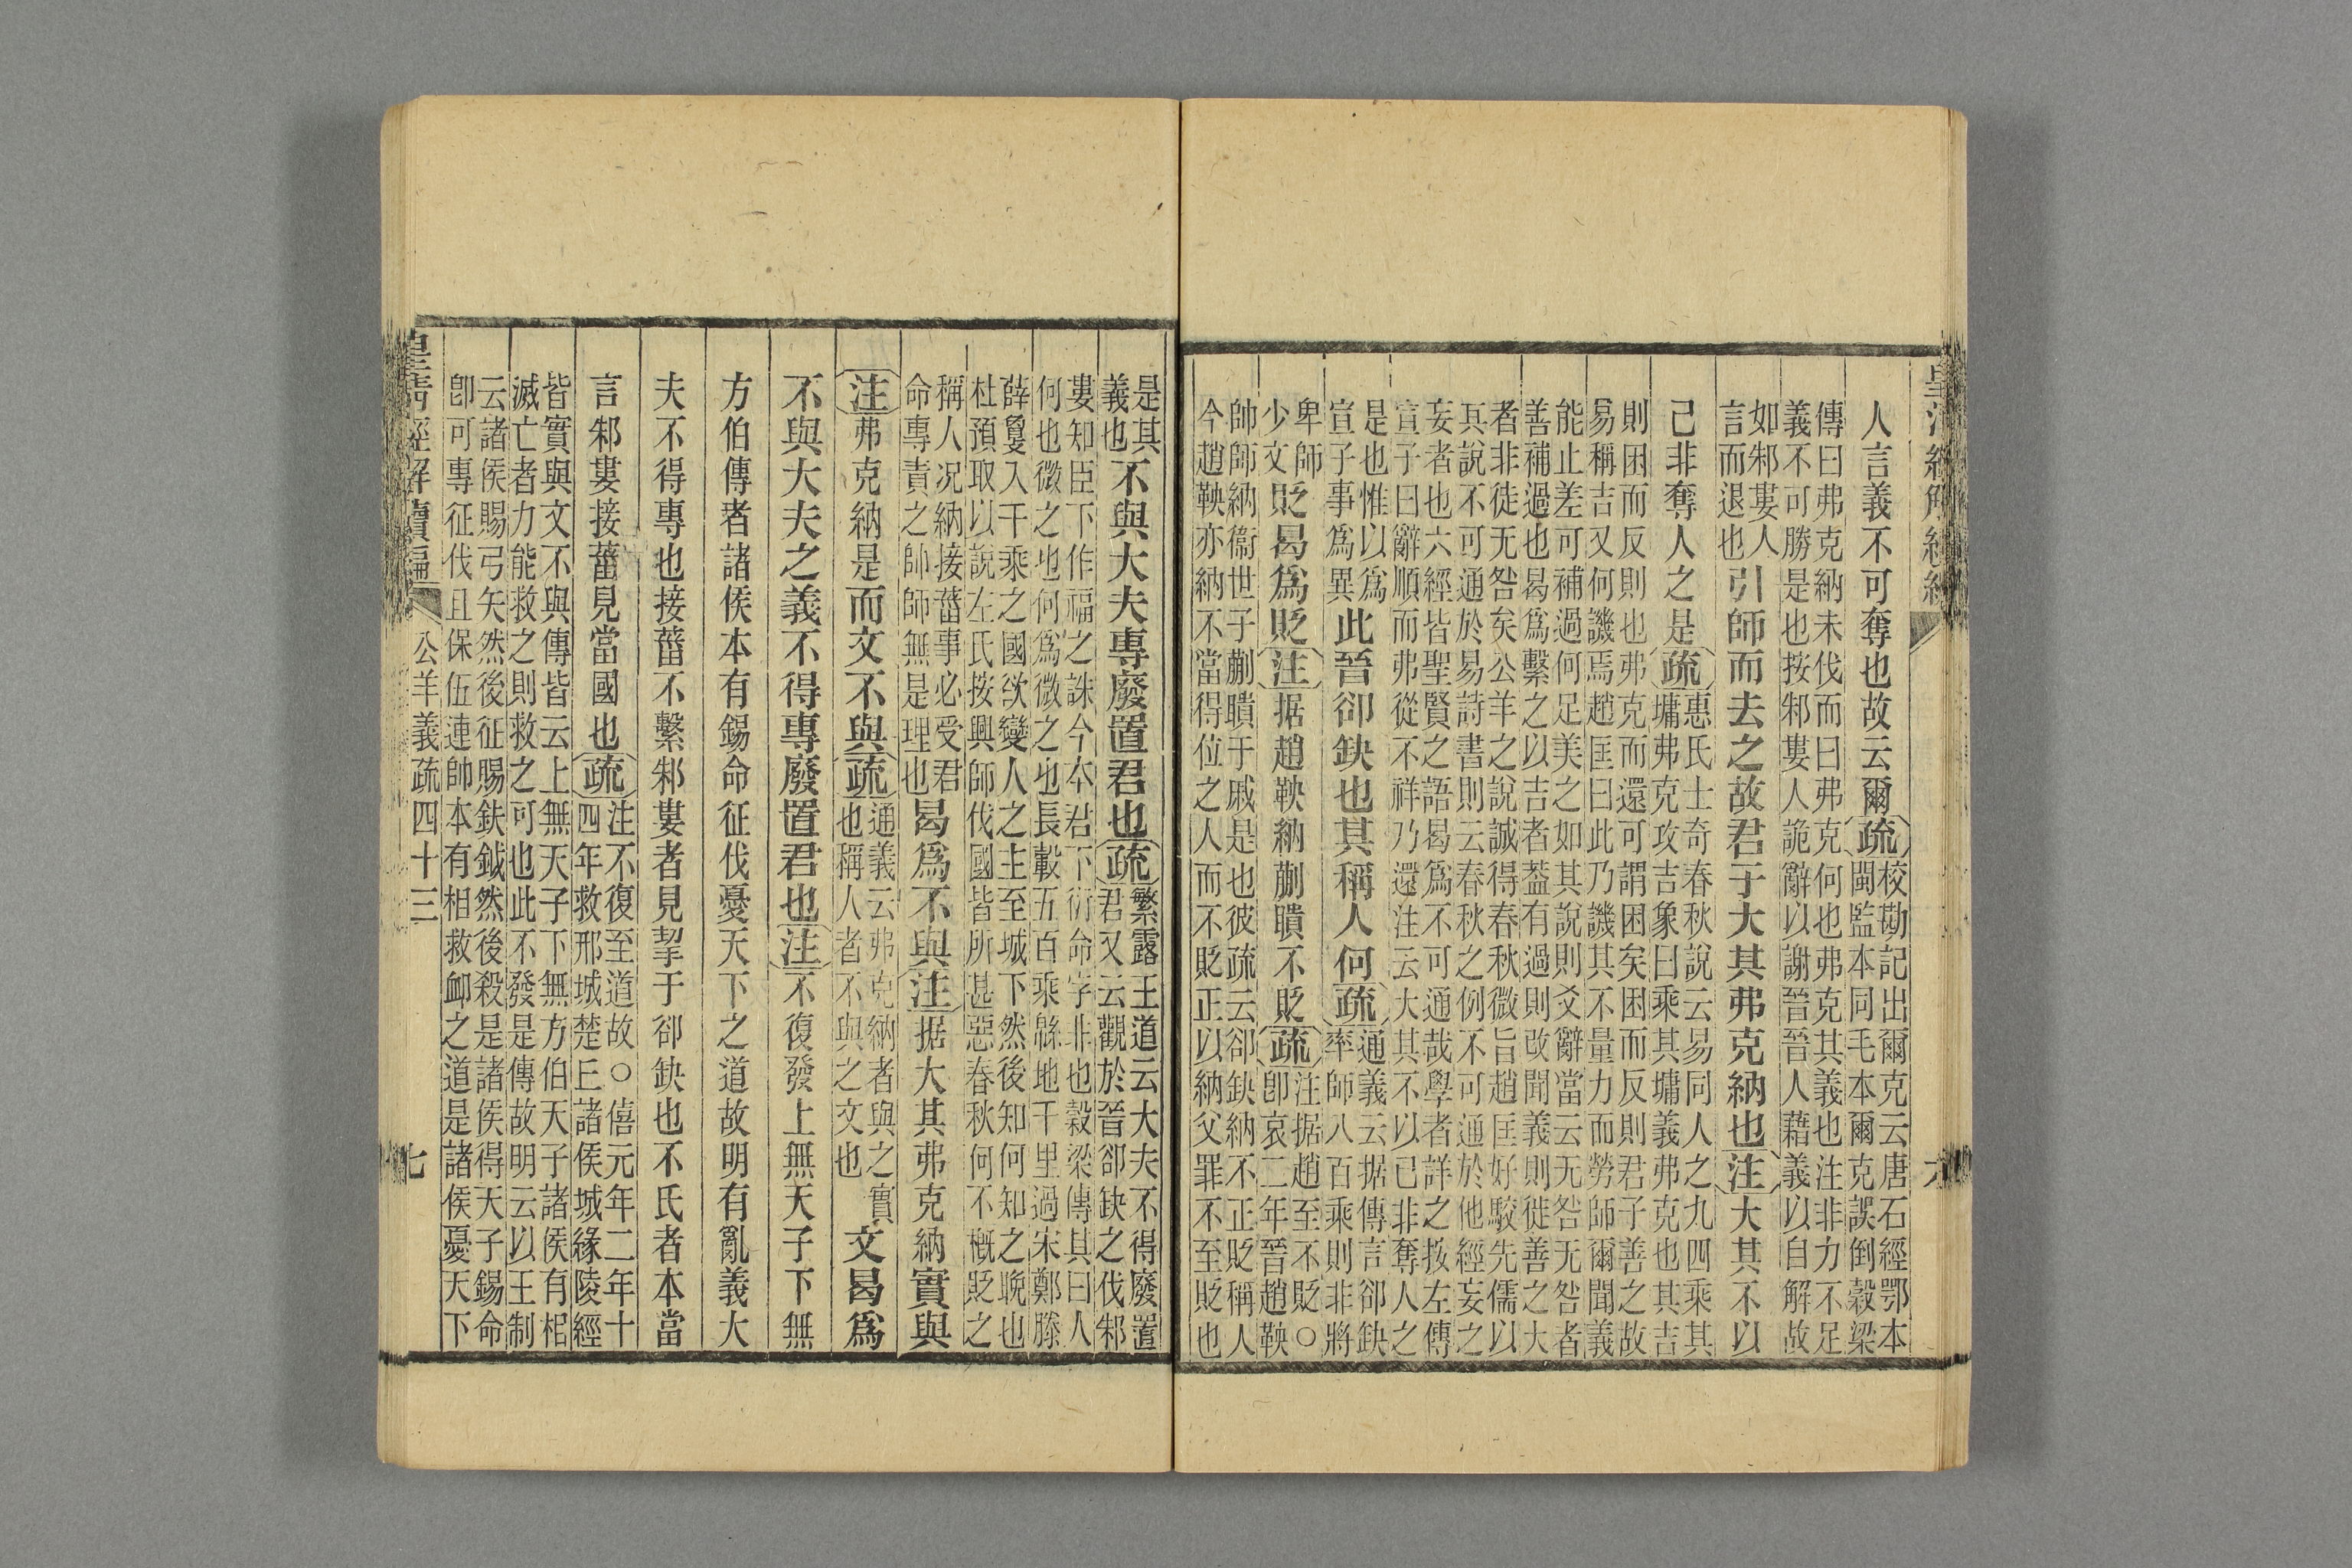 人言義不可奪也故云爾疏校勘記出爾克云唐石經鄂本
閩監本同毛本爾克誤倒穀梁
傳曰弗克納未伐而曰弗克何也弗克其義也注非力不足
義不可勝是也按邾婁人詭辭以謝晉晉人藉義以自解故
如邾婁人
言而退也引師而去之故君子大其弗克納也注大其不以
己非奪人之是疏惠氏士奇春秋說云易同人之九四乘其
墉弗克攻吉象曰乘其墉義弗克也其吉
則困而反則也弗克而還可謂困矣困而反則君子善之故
易稱吉又何譏焉趙匡曰此乃譏其不量力而勞師爾聞義
能止差可補過何足美之如其說則爻辭當云无咎无咎者
善補過也曷爲繫之以吉者葢有過則改聞義則徙善之大
者非徒无咎矣公羊之說誠得春秋微旨趙匡好駮先儒以
其說不可通於易詩書則云春秋之例不可通於他經妄之
妄者也六經皆聖賢之語曷爲不可通哉學者詳之按左傳
宣子曰辭順而弗從不祥乃還注云大其不以已非奪人之
是也惟以爲
宣子事爲異此晉郤缺也其稱人何疏通義云据傳言郤缺
率師八百乘則非將
卑師
少文貶曷爲貶注据趙鞅納蒯聵不貶疏注据趙至不貶○
卽哀二年晉趙鞅
帥師納衞世子蒯聵于戚是也彼疏云郤缺納不正貶稱人
今趙鞅亦納不當得位之人而不貶正以納父罪不至貶也
是其
義也不與大夫專廢置君也疏繁露王道云大夫不得廢置
君又云觀於晉郤缺之伐邾
婁知臣下作福之誅今本君下衍命字非也穀梁傳其曰人
何也微之也何爲微之也長轂五百乘緜地千里過宋鄭滕
薛夐入千乘之國欲變人之主至城下然後知何知之晚也
杜預取以說左氏按興師伐國皆所甚惡春秋何不概貶之
稱人况納接菑事必受君
命專責之帥師無是理也曷爲不與注据大其弗克納實與
注弗克納是而文不與疏通義云弗克納者與之實
也稱人者不與之文也文曷爲
不與大夫之義不得專廢置君也注不復發上無天子下無
方伯傳者諸侯本有錫命征伐憂天下之道故明有亂義大
夫不得專也接菑不繫邾婁者見挈于郤缺也不氏者本當
言邾婁接菑見當國也疏注不復至道故○僖元年二年十
四年救邢城楚丘諸侯城緣陵經
皆實與文不與傳皆云上無天子下無方伯天子諸侯有相
滅亡者力能救之則救之可也此不發是傳故明云以王制
云諸侯賜弓矢然後征賜鈇鉞然後殺是諸侯得天子錫命
卽可專征伐且保伍連帥本有相救卹之道是諸侯憂天下
皇淸經解續編 公羊義疏四十三 七